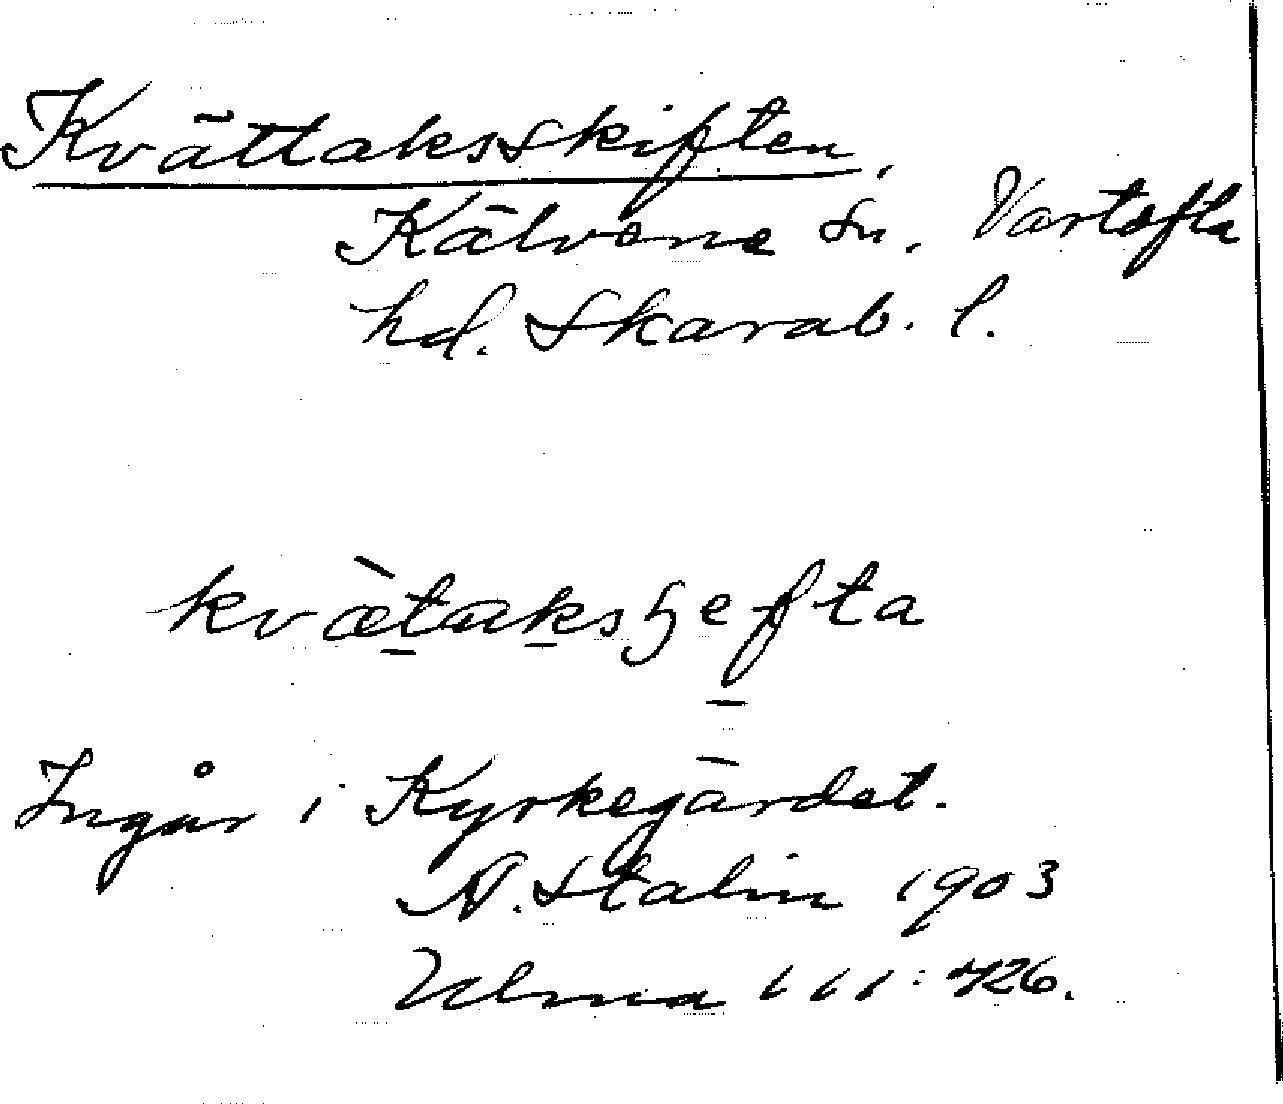 Kvättaksskiften,
Kälvene sn, Vartofta
hd. Skarab. l.
kvæ̀taksꞕefta
Ingår i Kyrkegärdet.
N. Stalin 1903
Ulma 111:426.